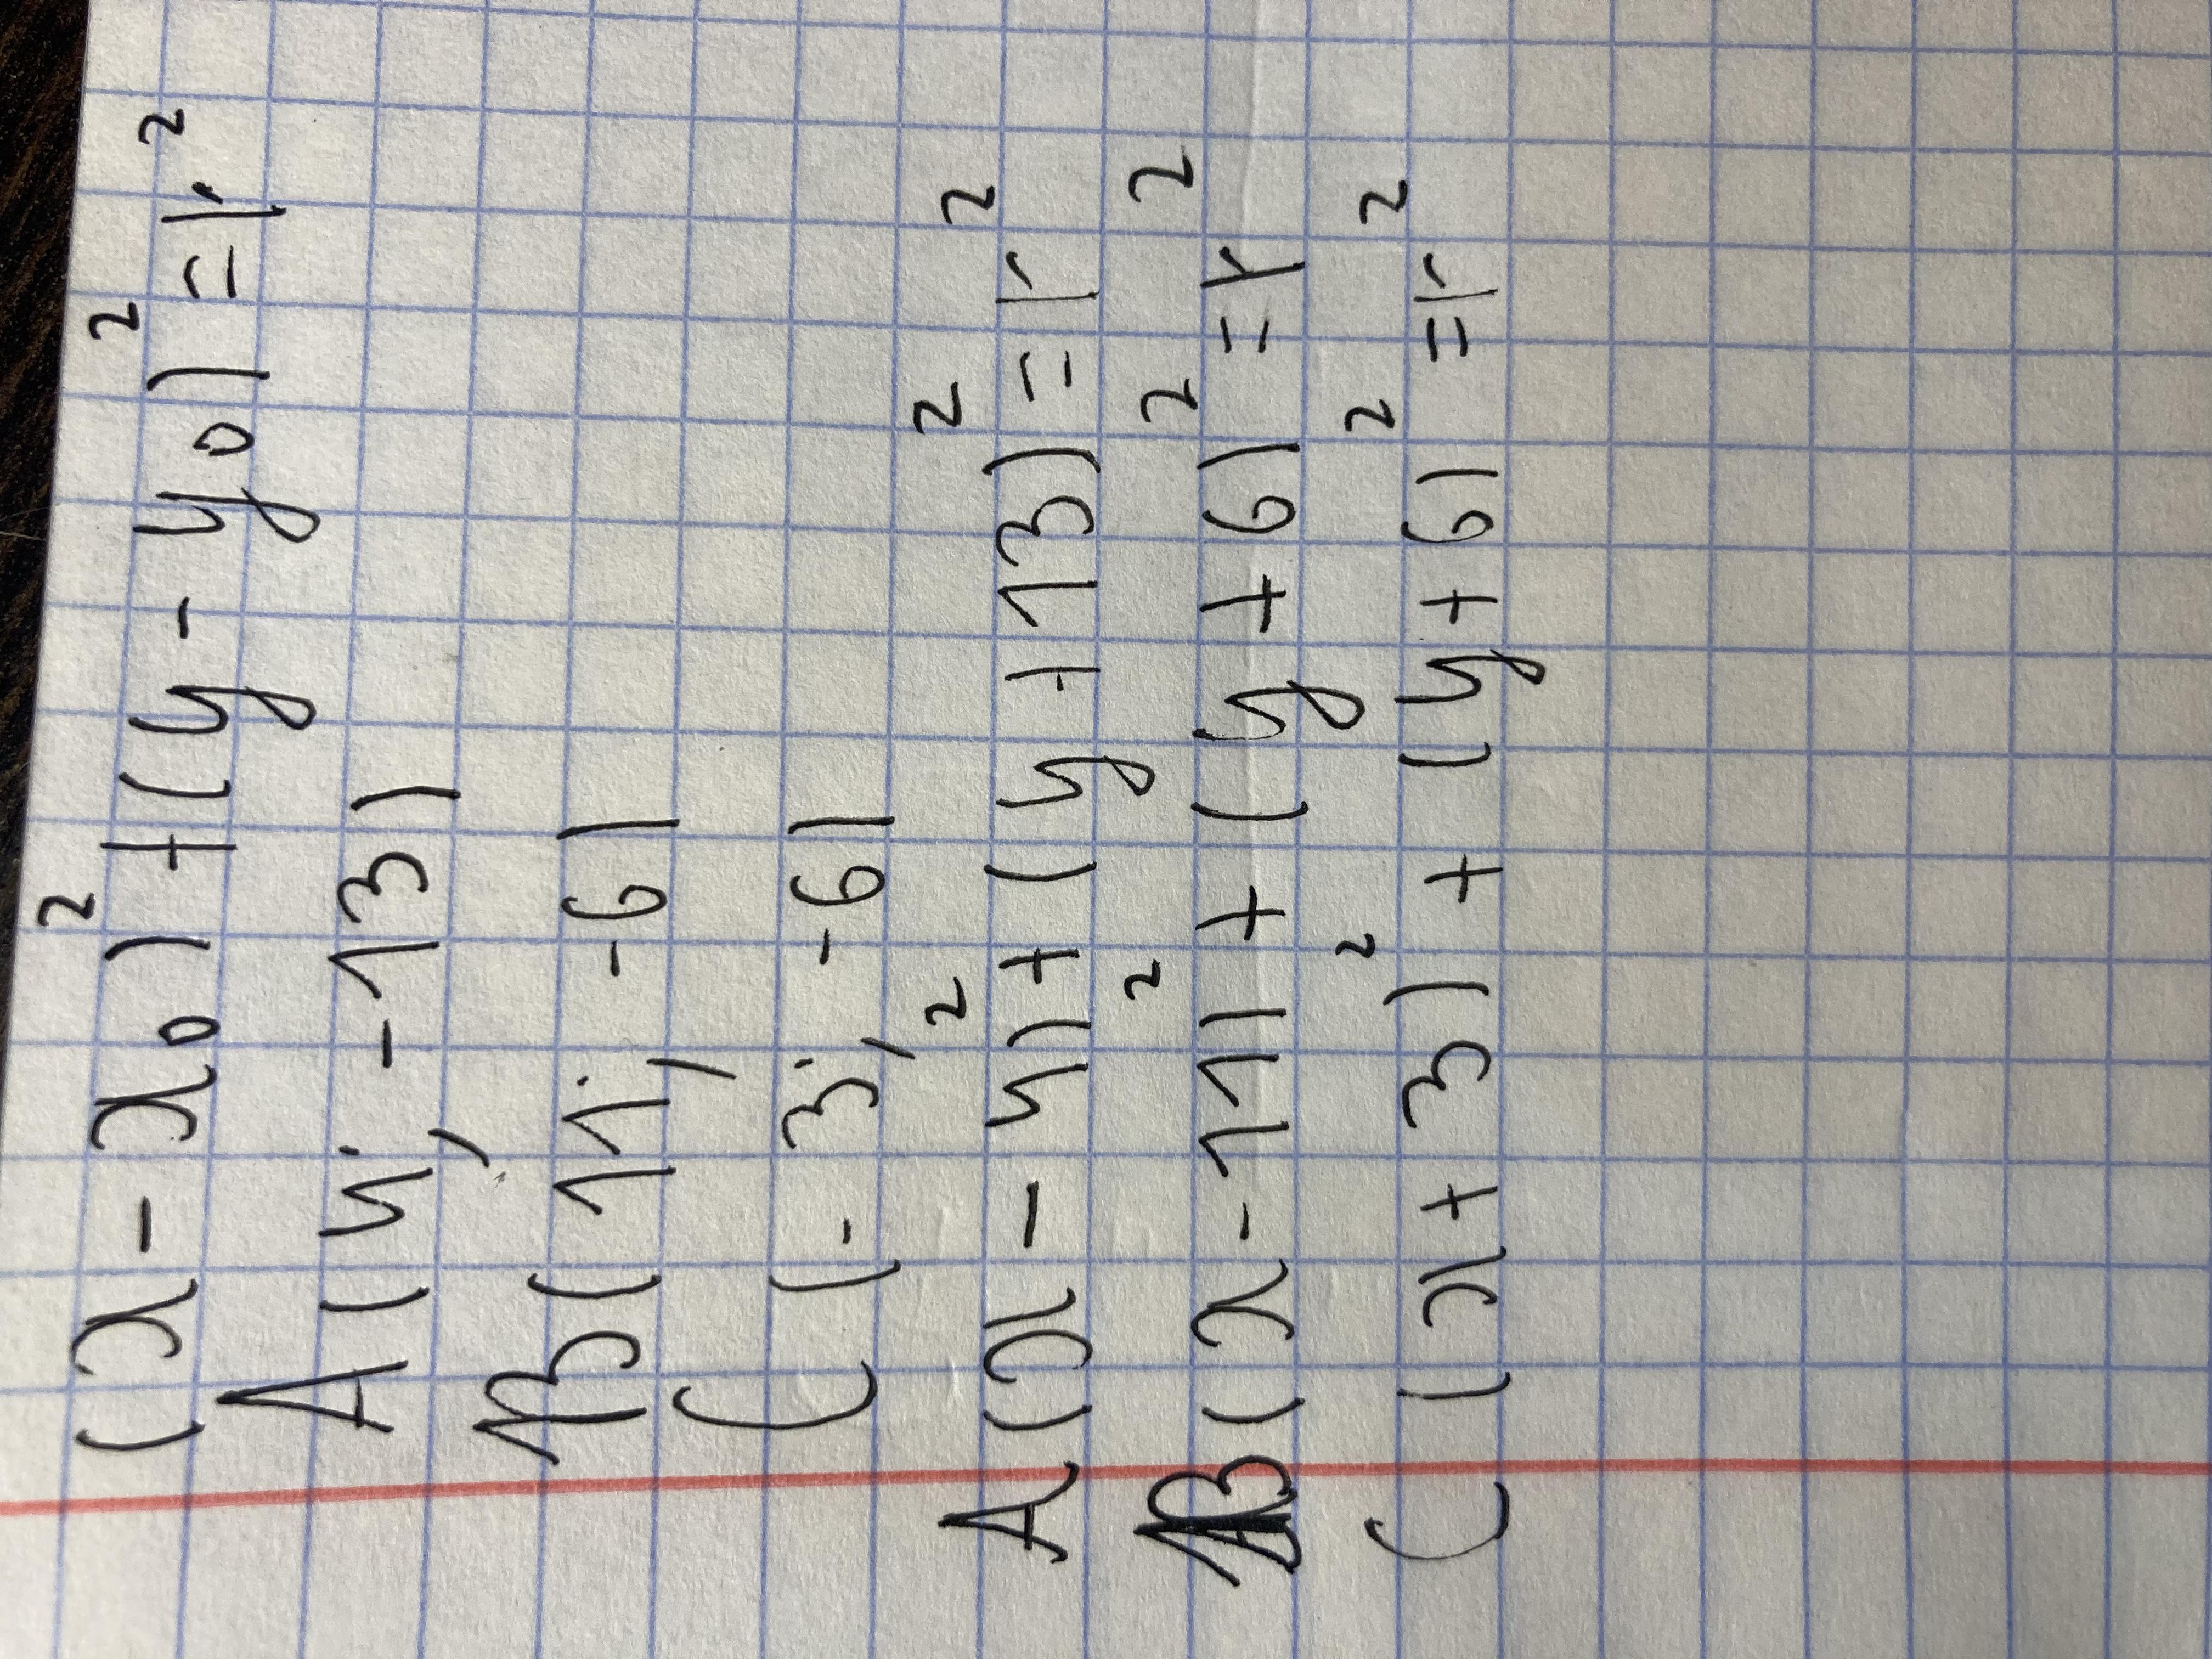 (x - x₀)² + (y - y₀)² = r²
A (4; -13)
B (11; -6)
C (-3; -6)
A (x - 4)² + (y + 13)² = r²
B (x - 11)² + (y + 6)² = r²
C (x + 3)² + (y + 6)² = r²